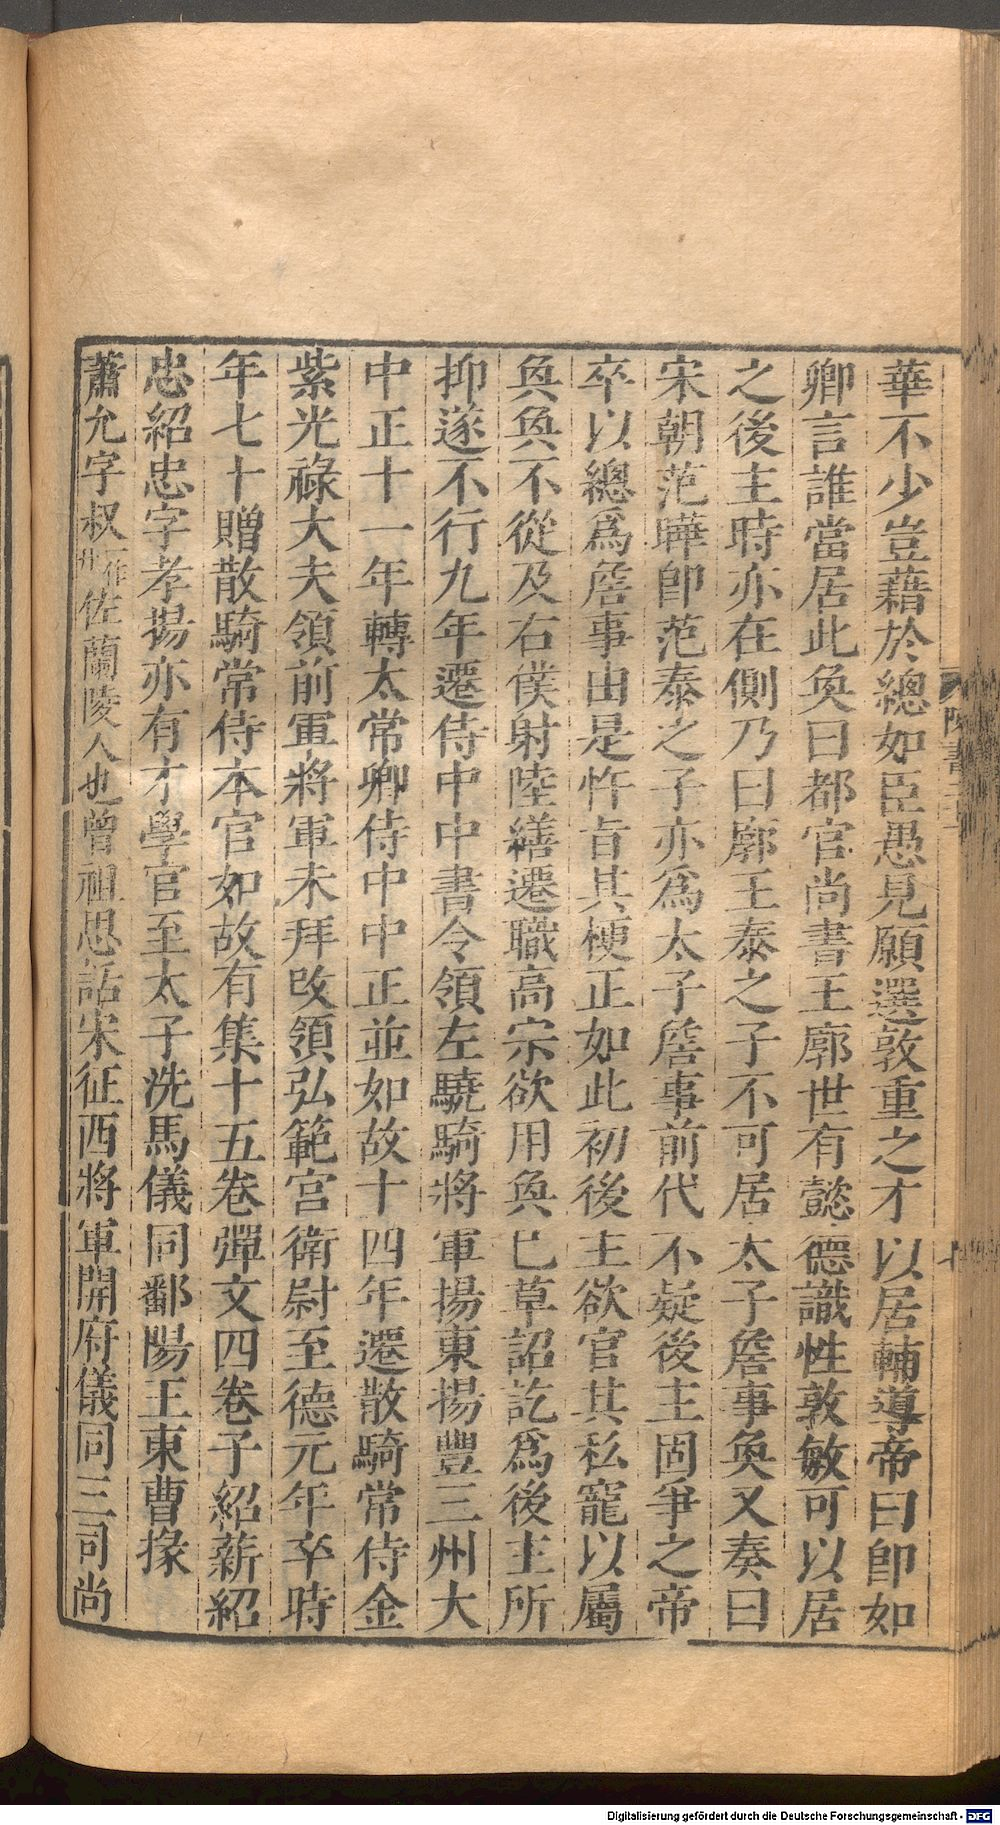 華不少豈藉於總如臣愚見願選敦重之才以居輔導帝曰卽如
卿言誰當居此奐曰都官尚書王廓世有懿德識性敦敏可以居
之後主時亦在側乃曰廓王泰之子不可居太子詹事奐又奏曰
宋朝范曄卽范泰之子亦爲太子詹事前代不疑後主固爭之帝
卒以總爲詹事由是忤旨其梗正如此初後主欲官其私寵以屬
奐奐不從及右僕射陸繕遷職高宗欲用奐已草詔訖爲後主所
抑遂不行九年遷侍中中書令領左驍騎將軍揚東揚豐三州大
中正十一年轉太常卿侍中中正並如故十四年遷散騎常侍金
紫光祿大夫領前軍將軍未拜改領弘範宮衛尉至德元年卒時
年七十贈散騎常侍本官如故有集十五卷彈文四卷子紹薪紹
忠紹忠字孝揚亦有才學官至太子洗馬儀同鄱陽王東曹掾
蕭允字叔一作佐蘭陵人也曾祖思話宋征西將軍開府儀同三司尚
Digitalisierung gefördert durch die Deutsche Forschungsgemeinschaft - DFG